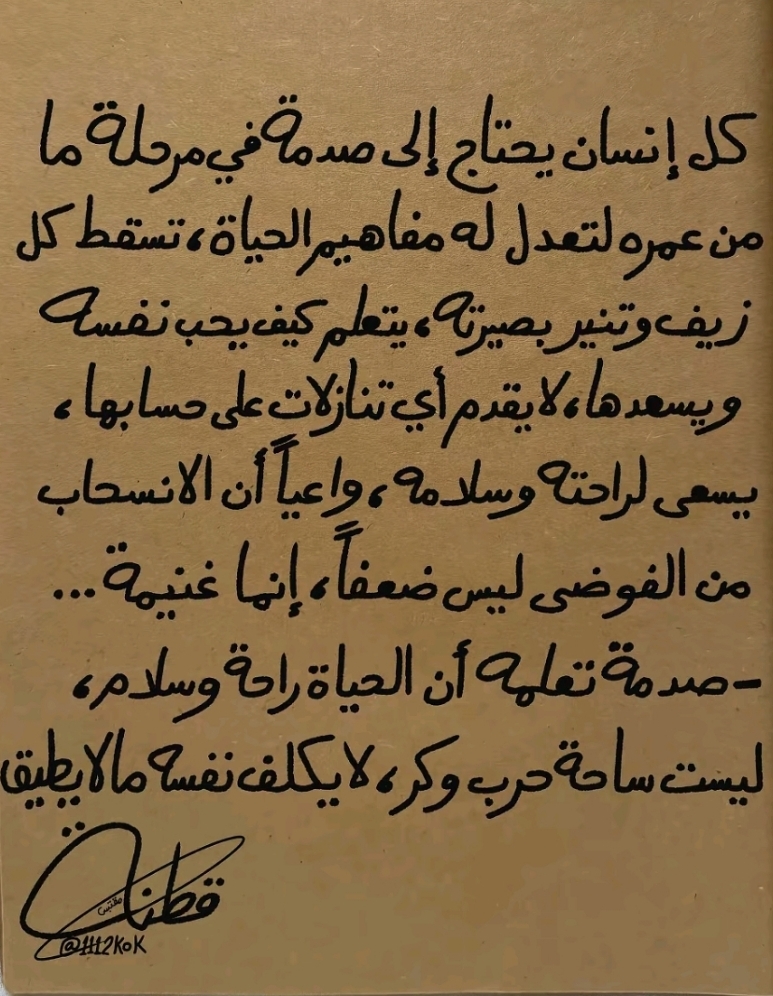 كل إنسان يحتاج إلى صدمة في مرحلة ما
من عمره لتعدل له مفاهيم الحياة، تسقط كل
زيف وتنير بصيرته، يتعلم كيف يحب نفسه
ويسعدها، لا يقدم أي تنازلات على حسابها،
يسعى لراحته وسلامه، واعياً أن الانسحاب
من الفوضى ليس ضعفاً، إنما غنيمة...
-صدمة تعلمه أن الحياة راحة وسلام،
ليست ساحة حرب وكر، لا يكلف نفسه مالا يطيق
قطنة
@1112KOK